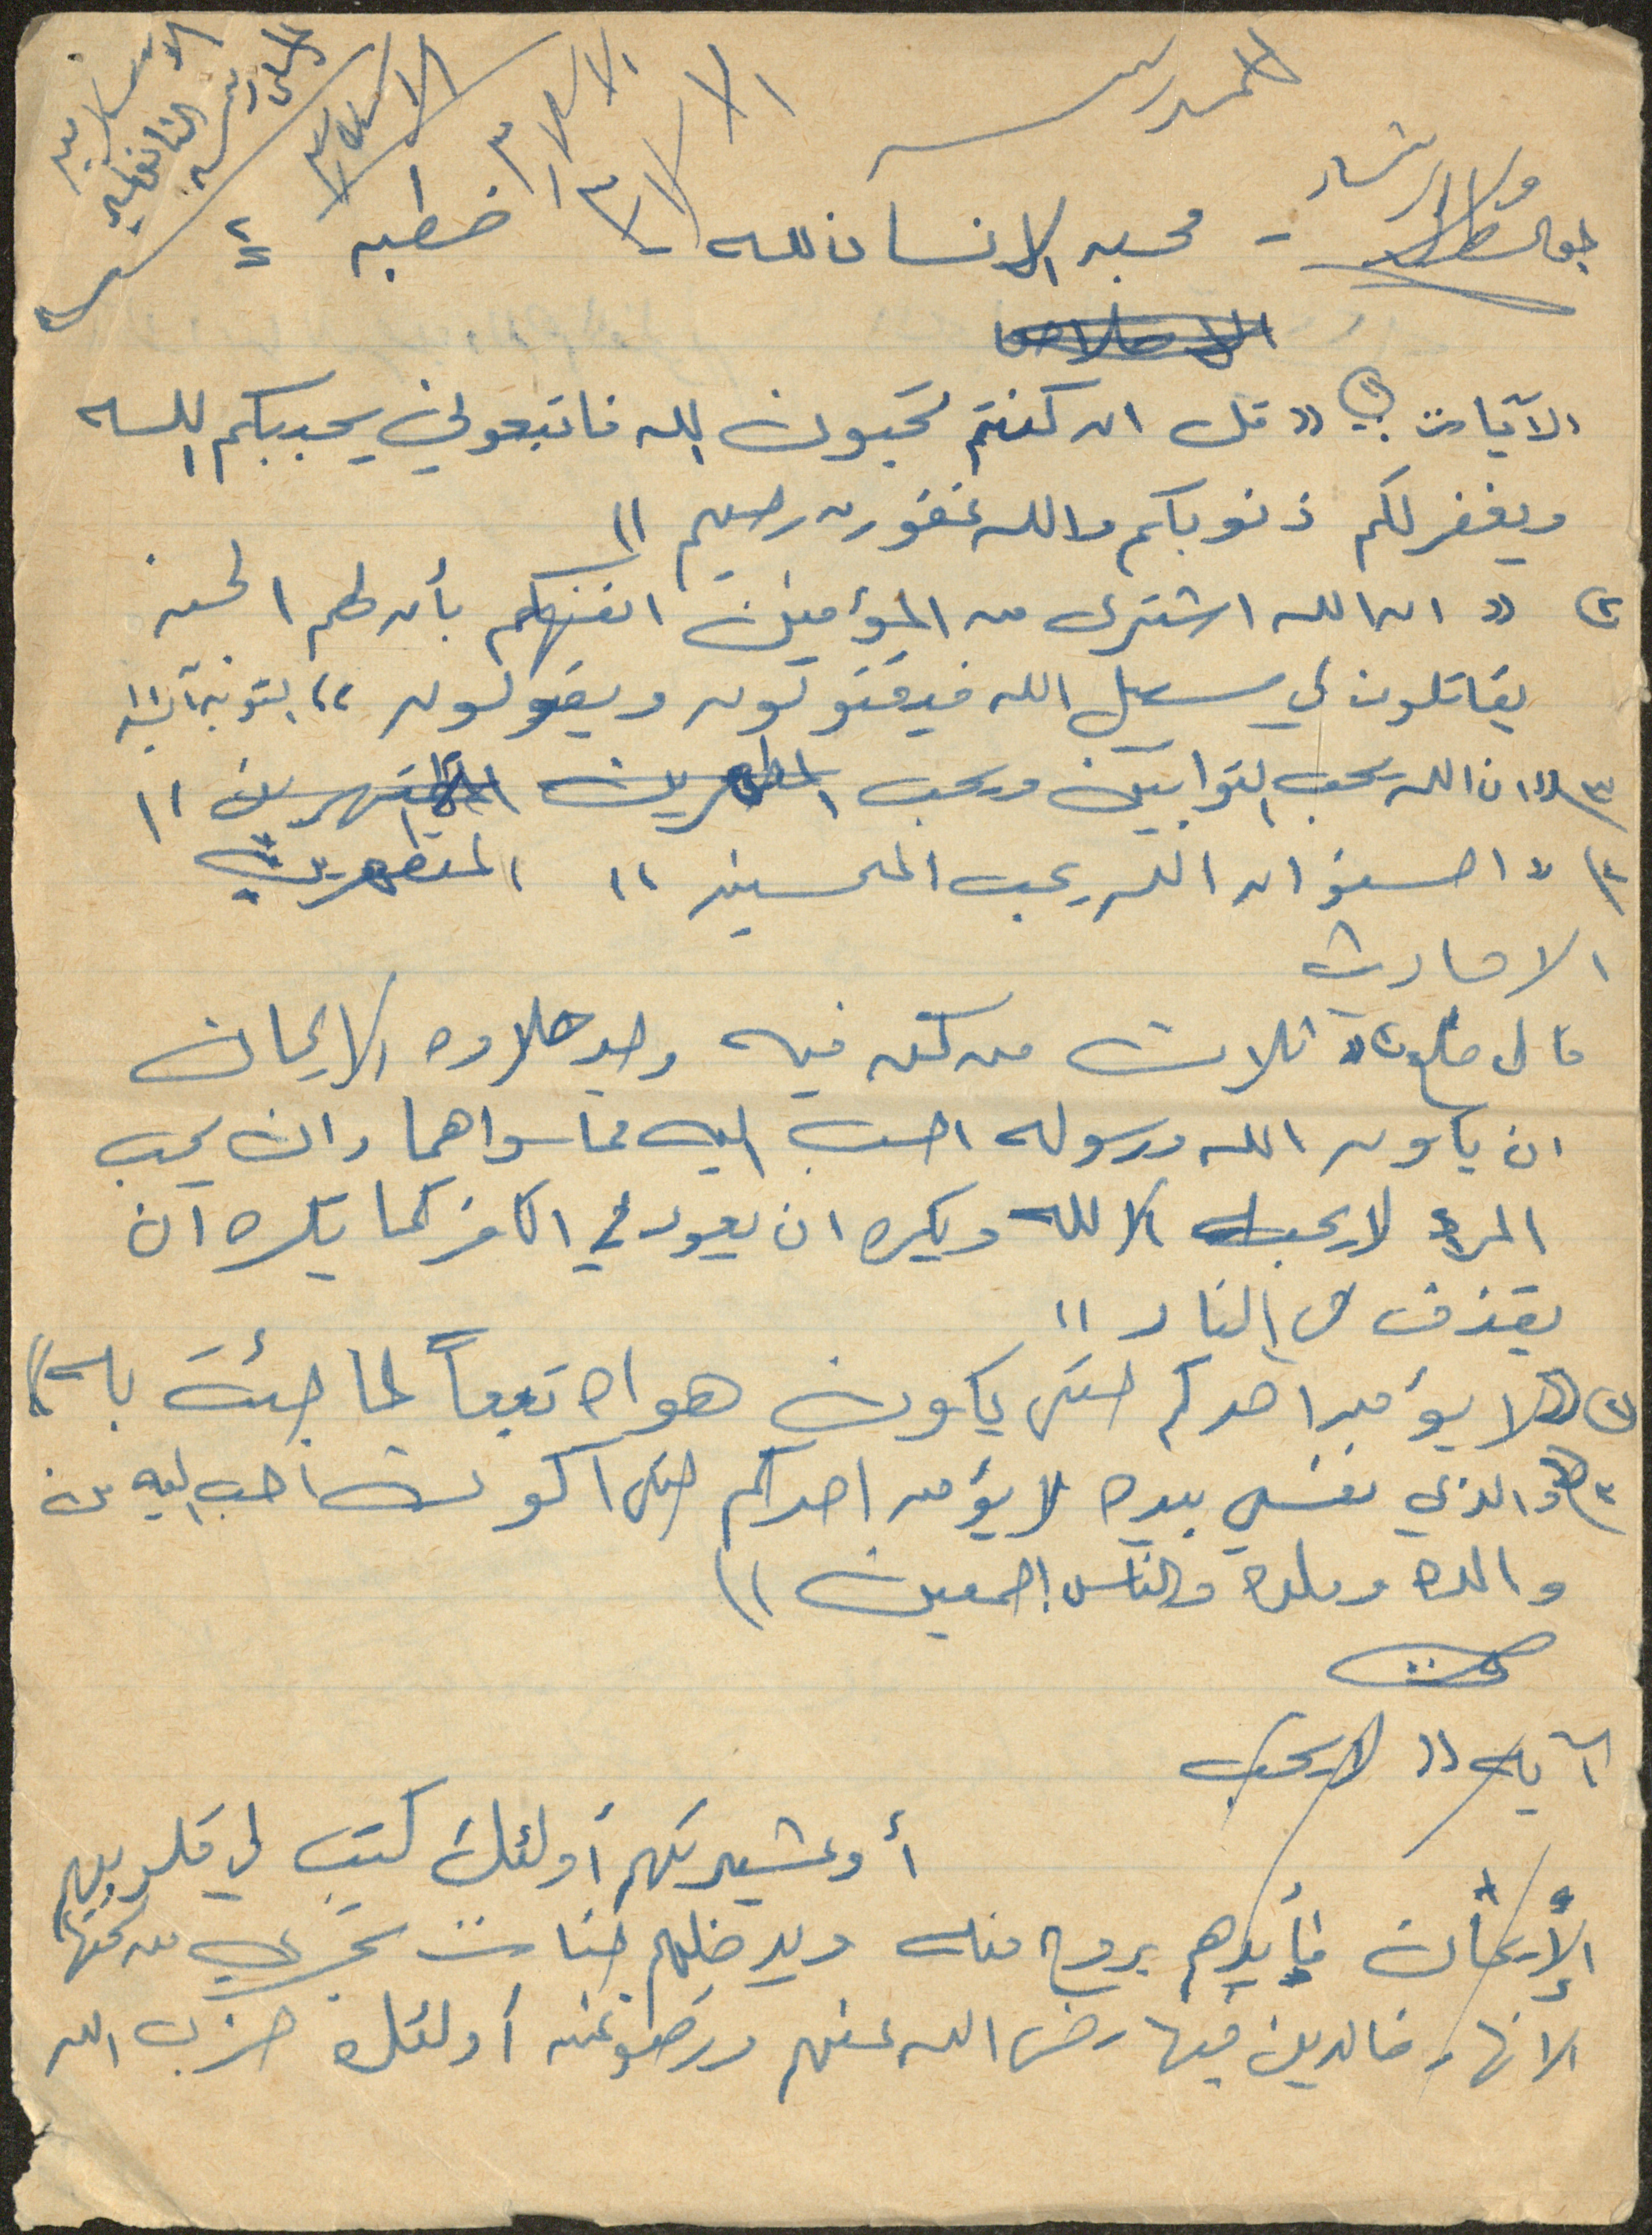 المدرسه
والارشاد
- محبه الانسان لله - خطبه
الآيات ١) «قل ان كنتم تحبون الله فاتبعوني يحببكم الله
ويغفر لكم ذنوبكم والله غفور رحيم»
٢) «ان الله اشترى من المؤمنين انفسهم بأن لهم الجنه
يقاتلون في سبيل الله فيقتلون ويقتلون» التوبه
٣) «ان الله يحب التوابين ويحب المطهرين المتطهرين»
المتطهرين
٤) «احسنوا ان الله يحب المحسنين»
الاحاديث
قال صلعم ١) «ثلاث من كن فيه وجد حلاوه الايمان
ان يكون الله ورسوله احب اليه مما سواهما وان يحب
المرء لا يحبه الا لله ويكره ان يعود في الكفر كما يكره ان
يقذف في النار»
٢) «لا يؤمن احدكم حتى يكون هواه تبعاً لما جئت به»
٣) «والذي نفسي بيده لا يؤمن احدكم حتى اكون احب اليه من
والده وولده والناس اجمعين»
آيه «لا يحب
أو عشيرتهم أولئك كتب في قلوبهم
الإيمان فأيدهم بروح منه ويدخلهم جنات تجري من تحتها
الانهار خالدين فيها رضى الله عنهم ورضو عنه أولئك حزب الله